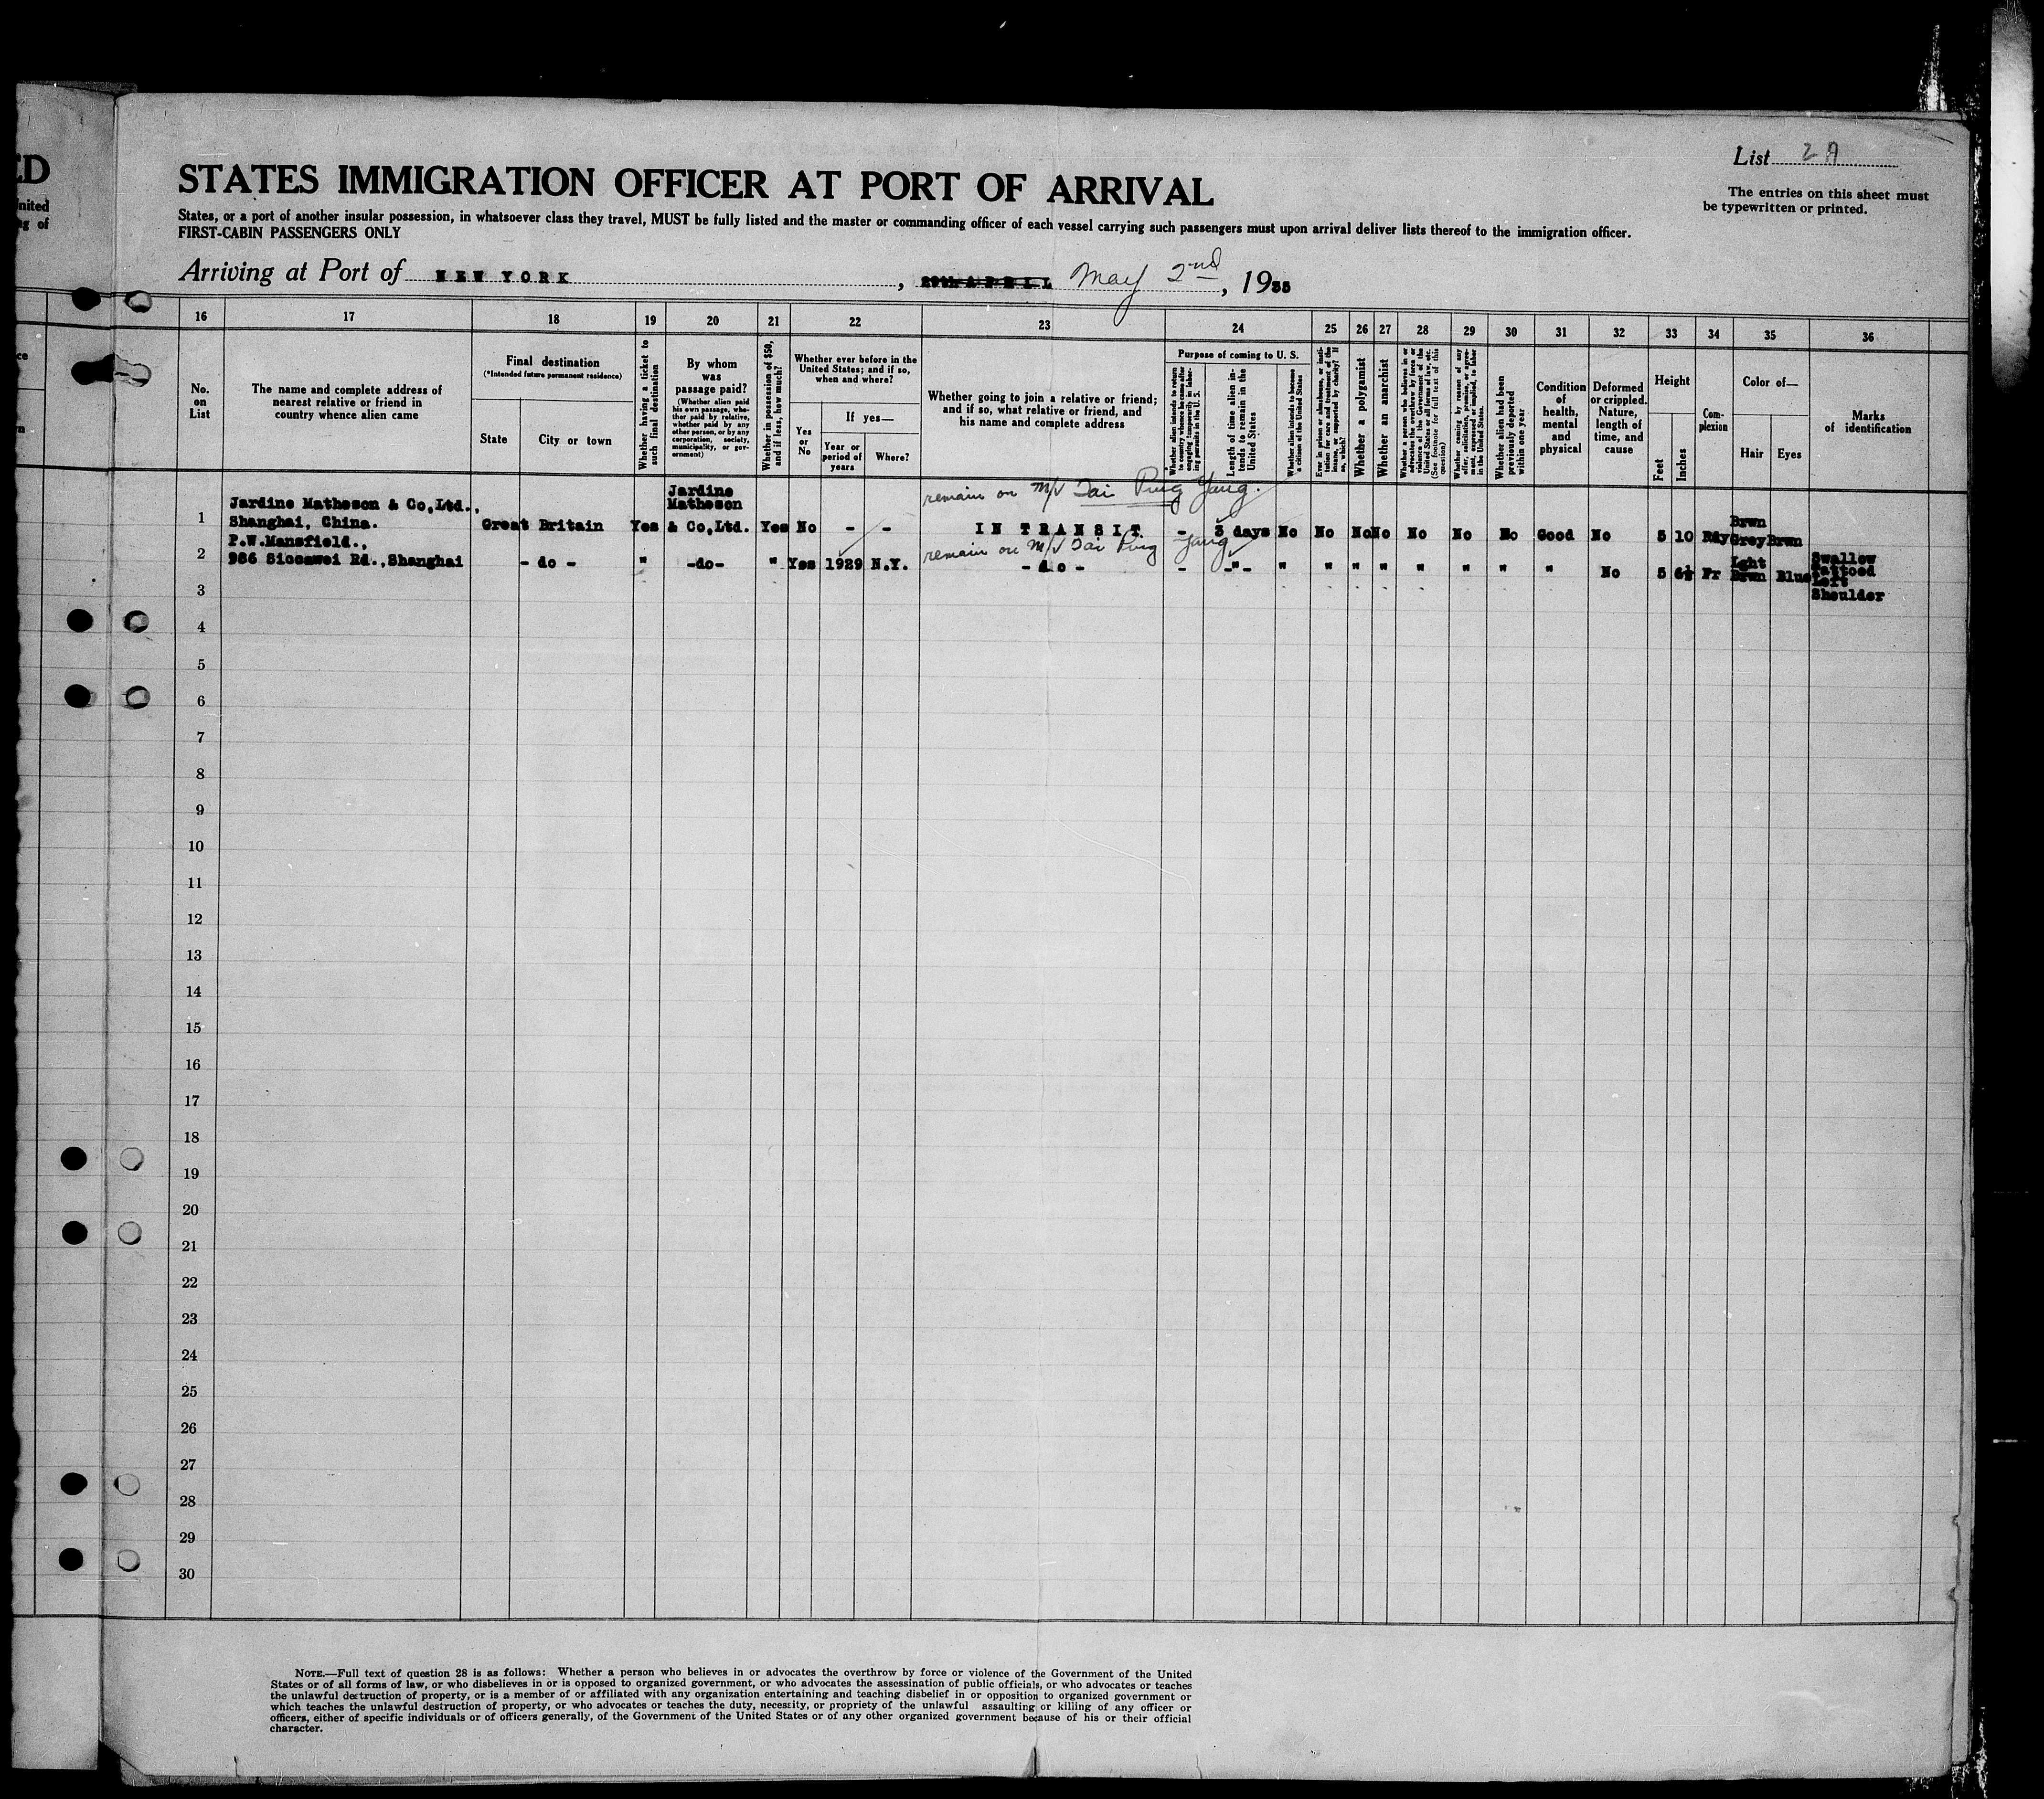 ED
nited
g of
List 2 A
The entries on this sheet must
be typewritten or printed.
STATES IMMIGRATION OFFICER AT PORT OF ARRIVAL
States, or a port of another insular possession, in whatsoever class they travel, MUST be fully listed and the master or commanding officer of each vessel carrying such passengers must upon arrival deliver lists thereof to the immigration officer.
FIRST-CABIN PASSENGERS ONLY
Arriving at Port of NEW YORK, 29th APRIL May 2nd, 1935
16 17 18 19 20 21 22 23 24 25 26 27 28 29 30 31 32 33 34 35 36
No.
on
List
The name and complete address of
nearest relative or friend in
country whence alien came
Final destination
(*Intended future permanent residence)
State
City or town
Whether having a ticket to
such final destination
By whom
was
passage paid?
(Whether alien paid
his own passage, whe-
ther paid by relative,
whether paid by any
other person, or by any
corporation, society,
municipality, or gov-
ernment)
Whether in possession of $50,
and if less, how much?
Whether ever before in the
United States; and if so,
when and where?
Yes
or
No
If yes—
Year or
period of
years
Where?
Whether going to join a relative or friend;
and if so, what relative or friend, and
his name and complete address
Purpose of coming to U. S.
Whether alien intends to return
to country whence he came after
engaging temporarily in labor-
ing pursuits in the U. S.
Length of time alien in-
tends to remain in the
United States
Whether alien intends to become
a citizen of the United States
Ever in prison or almshouse, or insti-
tution for care and treatment of the
insane, or supported by charity? If
so, which?
Whether a polygamist
Whether an anarchist
Whether a person who believes in or
advocates the overthrow by force or
violence of the Government of the
United States or all forms of law, etc.
(See footnote for full text of this
question)
Whether coming by reason of any
offer, solicitation, promise, or agree-
ment, expressed or implied, to labor
in the United States
Whether alien had been
previously deported
within one year
Condition
of
health,
mental
and
physical
Deformed
or crippled.
Nature,
length of
time, and
cause
Height
Feet
Inches
Com-
plexion
Color of—
Hair
Eyes
Marks
of identification
remain on M/V Tai Ping Yang.
Jardine Matheson & Co,Ltd.,
Jardine
Matheson
1 Shanghai, China. Great Britain Yes & Co,Ltd. Yes No - - IN TRANSIT - 3 days No No No No No No No Good No 5 10 Rdy Brwn Grey Brwn
P.W.Mansfield.,
remain on M/V Tai Ping Yang
2 986 Siccawei Rd.,Shanghai - do - " -do- " Yes 1929 N.Y. - do - - -"- " " " " " " " " No 5 6½ Fr Lght Brwn Blue Swallow
Tattoed
Left
Shoulder
3
4
5
6
7
8
9
10
11
12
13
14
15
16
17
18
19
20
21
22
23
24
25
26
27
28
29
30
NOTE.—Full text of question 28 is as follows: Whether a person who believes in or advocates the overthrow by force or violence of the Government of the United
States or of all forms of law, or who disbelieves in or is opposed to organized government, or who advocates the assassination of public officials, or who advocates or teaches
the unlawful destruction of property, or is a member of or affiliated with any organization entertaining and teaching disbelief in or opposition to organized government or
which teaches the unlawful destruction of property, or who advocates or teaches the duty, necessity, or propriety of the unlawful assaulting or killing of any officer or
officers, either of specific individuals or of officers generally, of the Government of the United States or of any other organized government because of his or their official
character.